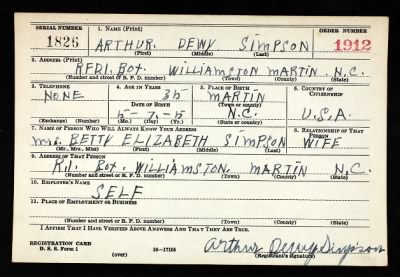 SERIAL NUMBER 1. NAME (Print) ORDER NUMBER
1826 ARTHUR. DEWY SIMPSON 1912
(First) (Middle) (Last)
2. ADDRESS (Print)
RFD1. Box. WILLIAMSTON MARTIN. N.C.
(Number and street or R. F. D. number) (Town) (County) (State)
3. TELEPHONE 4. AGE IN YEARS 5. PLACE OF BIRTH 6. COUNTRY OF CITIZENSHIP
NONE 35 MARTIN
DATE OF BIRTH (Town or county)
N.C. U.S.A.
(Exchange) (No.) (Mo.) (Day) (Yr.) (State or country)
7. NAME OF PERSON WHO WILL ALWAYS KNOW YOUR ADDRESS 8. RELATIONSHIP OF THAT PERSON
mrs. BETTY ELIZABETH SIMPSON WIFE
(Mr., Mrs., Miss) (First) (Middle) (Last)
9. ADDRESS OF THAT PERSON
R.1. Box. WILLIAMSTON. MARTIN N.C.
(Number and street or R. F. D. number) (Town) (County) (State)
10. EMPLOYER'S NAME
SELF
11. PLACE OF EMPLOYMENT OR BUSINESS
(Number and street or R. F. D. number) (Town) (County) (State)
I AFFIRM THAT I HAVE VERIFIED ABOVE ANSWERS AND THAT THEY ARE TRUE.
REGISTRATION CARD
D. S. S. Form 1 16-17105 Arthur Dewy Simpson
(over) (Registrant's signature)